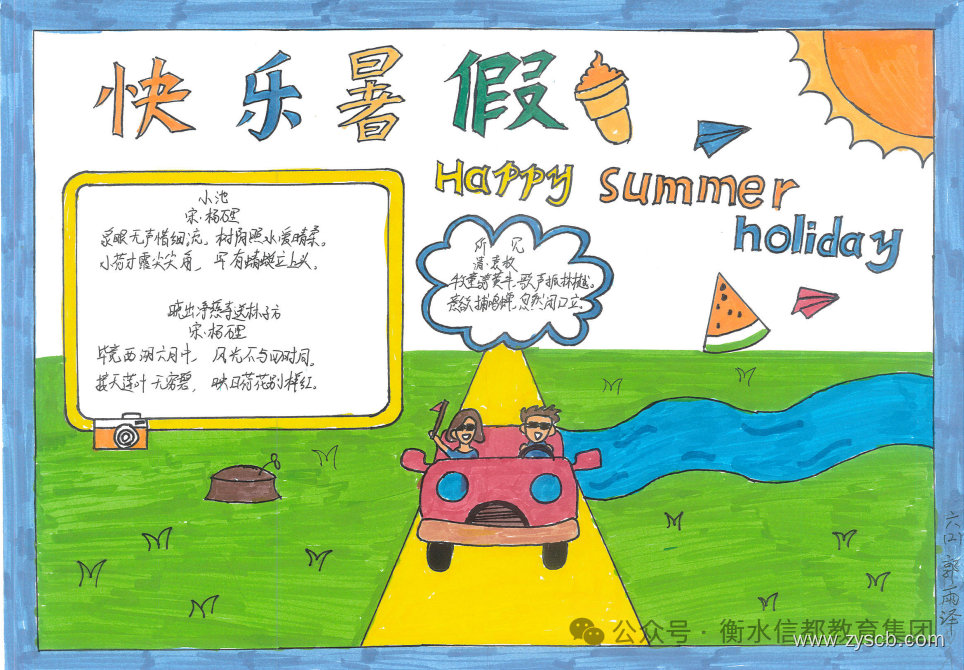 快乐暑假
Happy summer
holiday
小池
宋·杨万里
泉眼无声惜细流，树阴照水爱晴柔。
小荷才露尖尖角，早有蜻蜓立上头。
晓出净慈寺送林子方
宋·杨万里
毕竟西湖六月中，风光不与四时同。
接天莲叶无穷碧，映日荷花别样红。
所见
清·袁枚
牧童骑黄牛，歌声振林樾。
意欲捕鸣蝉，忽然闭口立。
六(2) 郭雨泽
公众号·衡水信都教育集团
www.zyscb.com